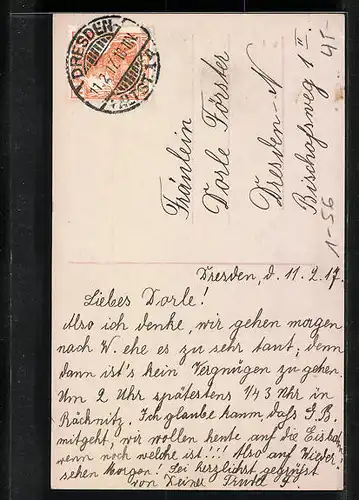 DRESDEN-
11.2.17.
ALTST.
Fräulein
Dorle Förster
Dresden-N
Bischofsweg 1 II
4,-
1-56
Dresden, d. 11.2.17.
Liebes Dorle!
Also ich denke, wir gehen morgen
nach W. ehe es zu sehr taut, denn
dann ist's kein Vergnügen zu gehen.
Um 2 Uhr spätestens 1/43 Uhr in
Räcknitz. Ich glaube kaum, dass G.B.
mitgeht, wir wollen heute auf die Eisbahn
wenn noch welche ist!!! Also auf Wieder-
sehen Morgen! Sei herzlichst gegrüßt
von Deiner Trude